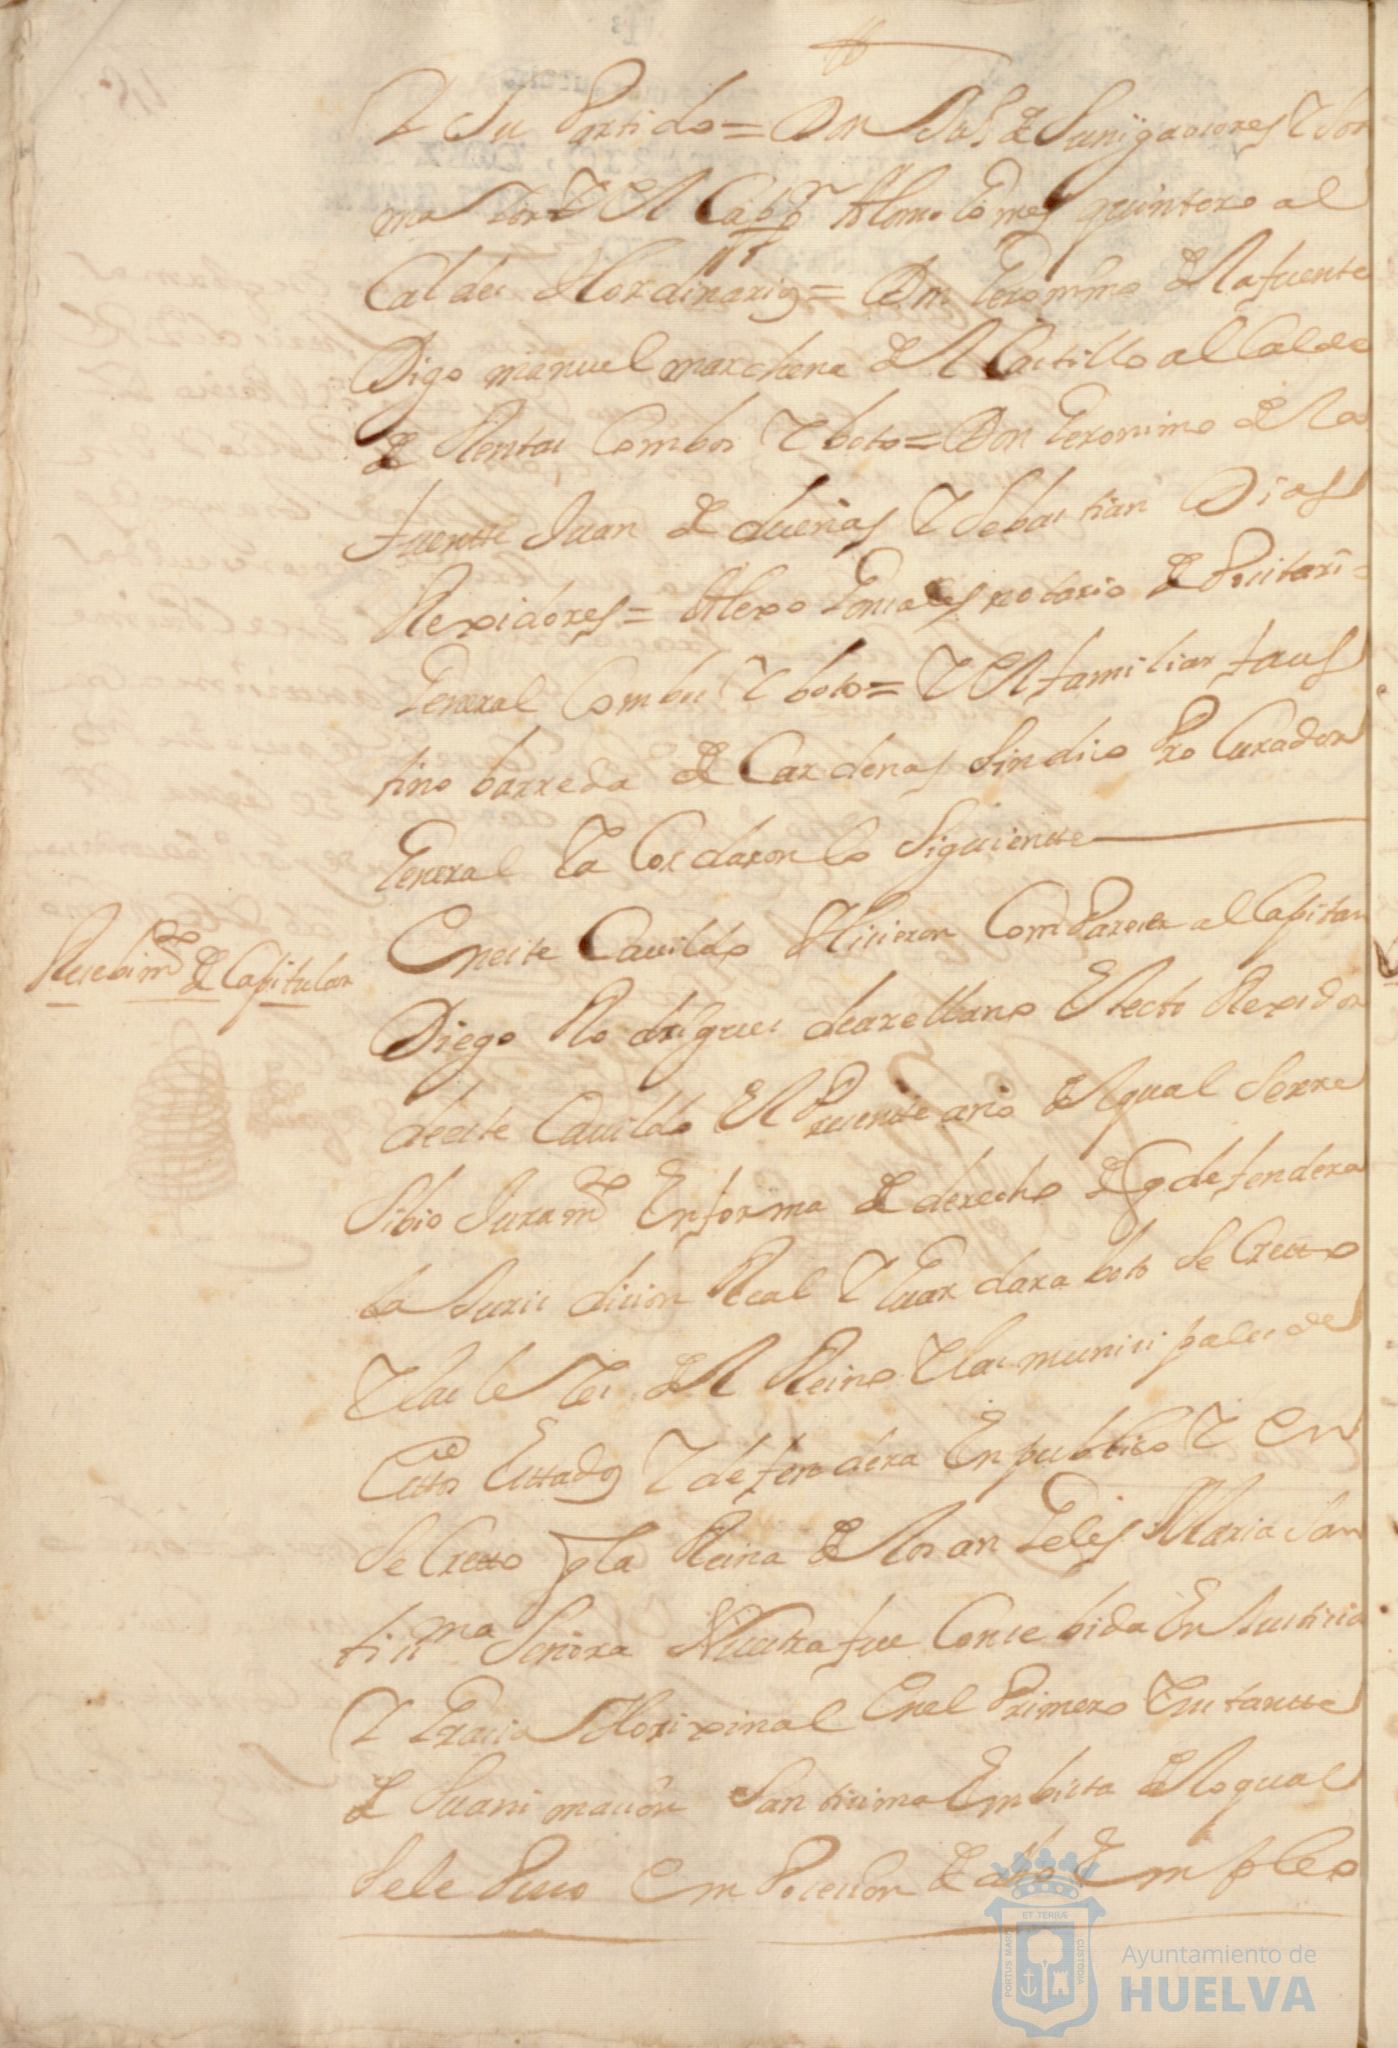 Y Su Partido = Don de Suniga atores Y Son
ma Sor Y El Cabo Alonso Gomes quintero al
Caldes Hordinarios = Don Geronimo de la fuente
Digo manuel marchena del Castillo al Calde
de Rentas Combos Y boto = Don Geronimo de la
fuente Juan de dueñas Y Sebastian Dias
Rexidores = Alexo Gonsales notario
General Combos Y boto = Y El familiar faus
tino barreda de Cardenas Sindico Pro Curador
General Ya Cordaron lo Siguiente
Resebimto de Capitular
Eneste Cauildo Hisieron ComParecer al Capitan
Diego Rodrigues dearellano Electo Rexidor
deeste Cauildo El Presente año del qual Serre
sibio Juramto En forma de derecho de q defendera
la Juris dision Real Y Guar dara boto Se Creto
Y las le Yes del Reino Y las munisi pales de
estos Estados Y defendera En publico Y En
Se Creto q la Reina de los an Geles Maria San
tissma Señora Nuestra fue Conse bida En Justisia
Y Grasia Horixinal Enel Primero Ynstante
de Suani masion San tisima Em bista de lo qual
Sele Puso Em Posesion de dho Em pleo
Ayuntamiento de
HUELVA
PORTUS MARIS
ET TERRÆ
CUSTODIA